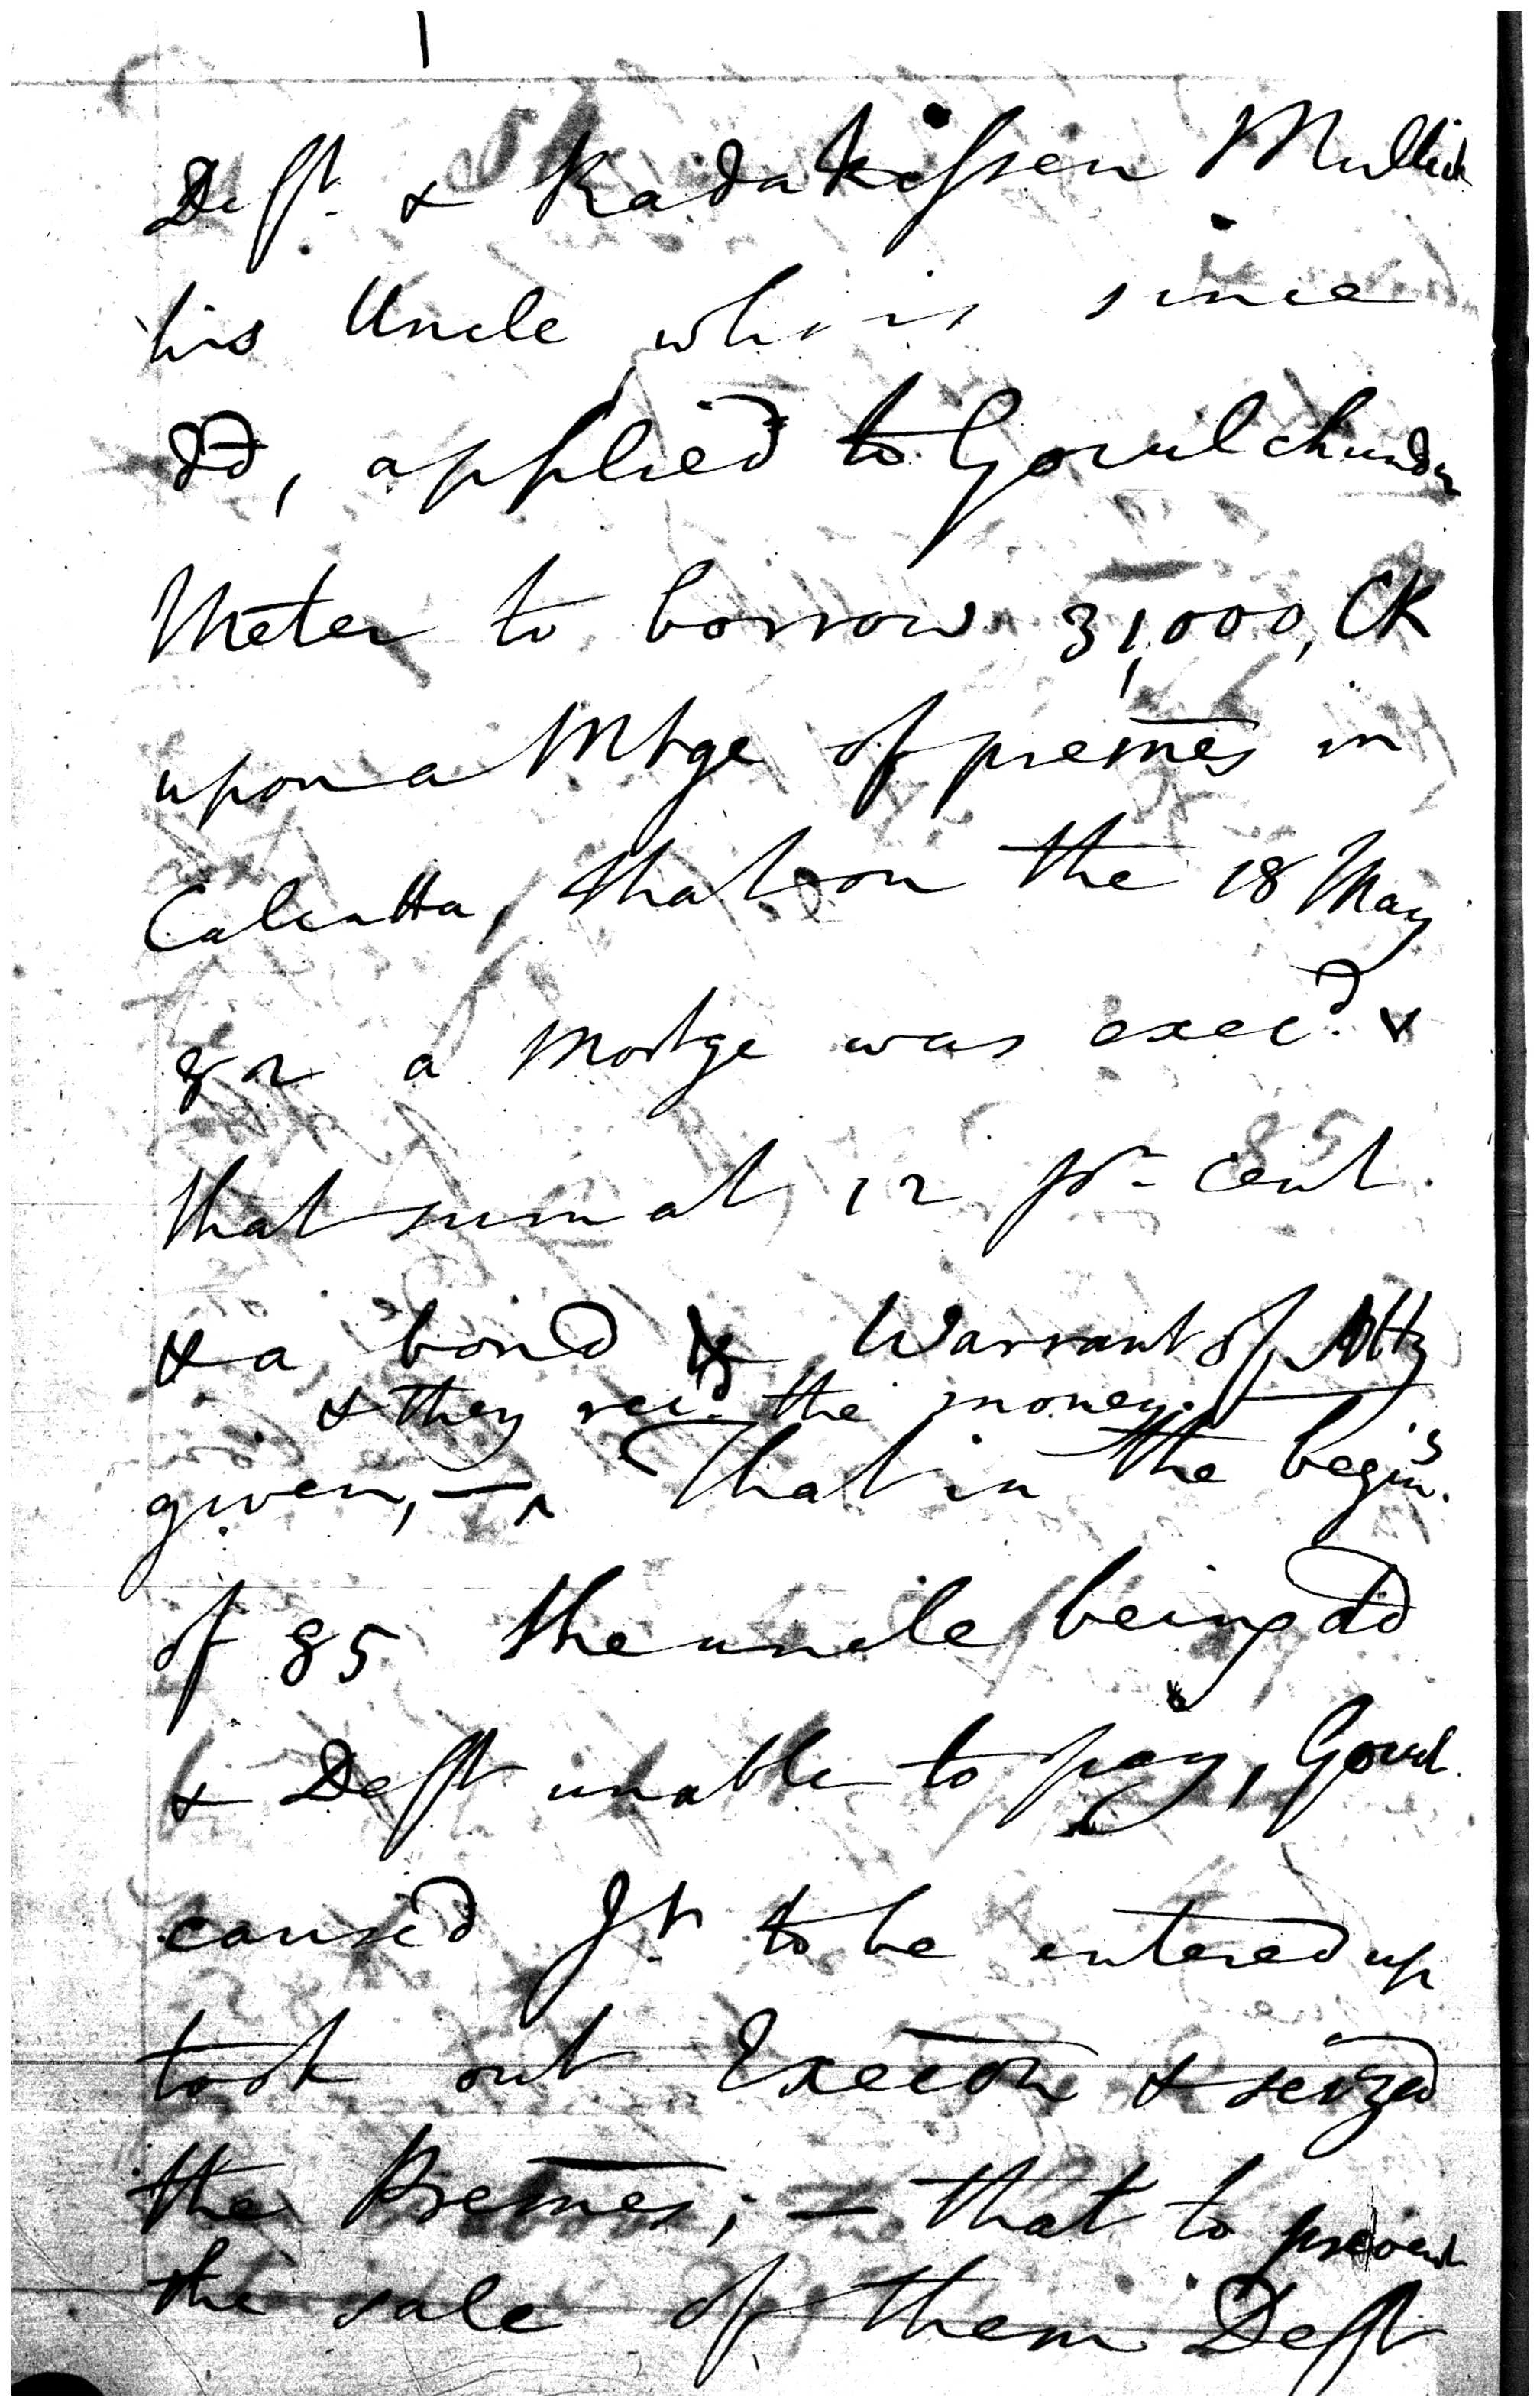 Deft. & Radakissen Mullick
his Uncle who is since
dd, applied to Goculchunder
Meter to borrow 31,000, CR
upon a Mtge of premes in
Calcutta, that on the 18 May
82 a Mortge was execd. &
that sum at 12 pr. cent
& a bond & Warrant of Atty
& they recd. the money.
given, — ^ That in the begin.g
of 85 the uncle being dd
& Deft unable to pay, Gocul
caused Jt. to be entered up
took out Execon & seized
the Premes; – that to prevent
the sale of them Deft